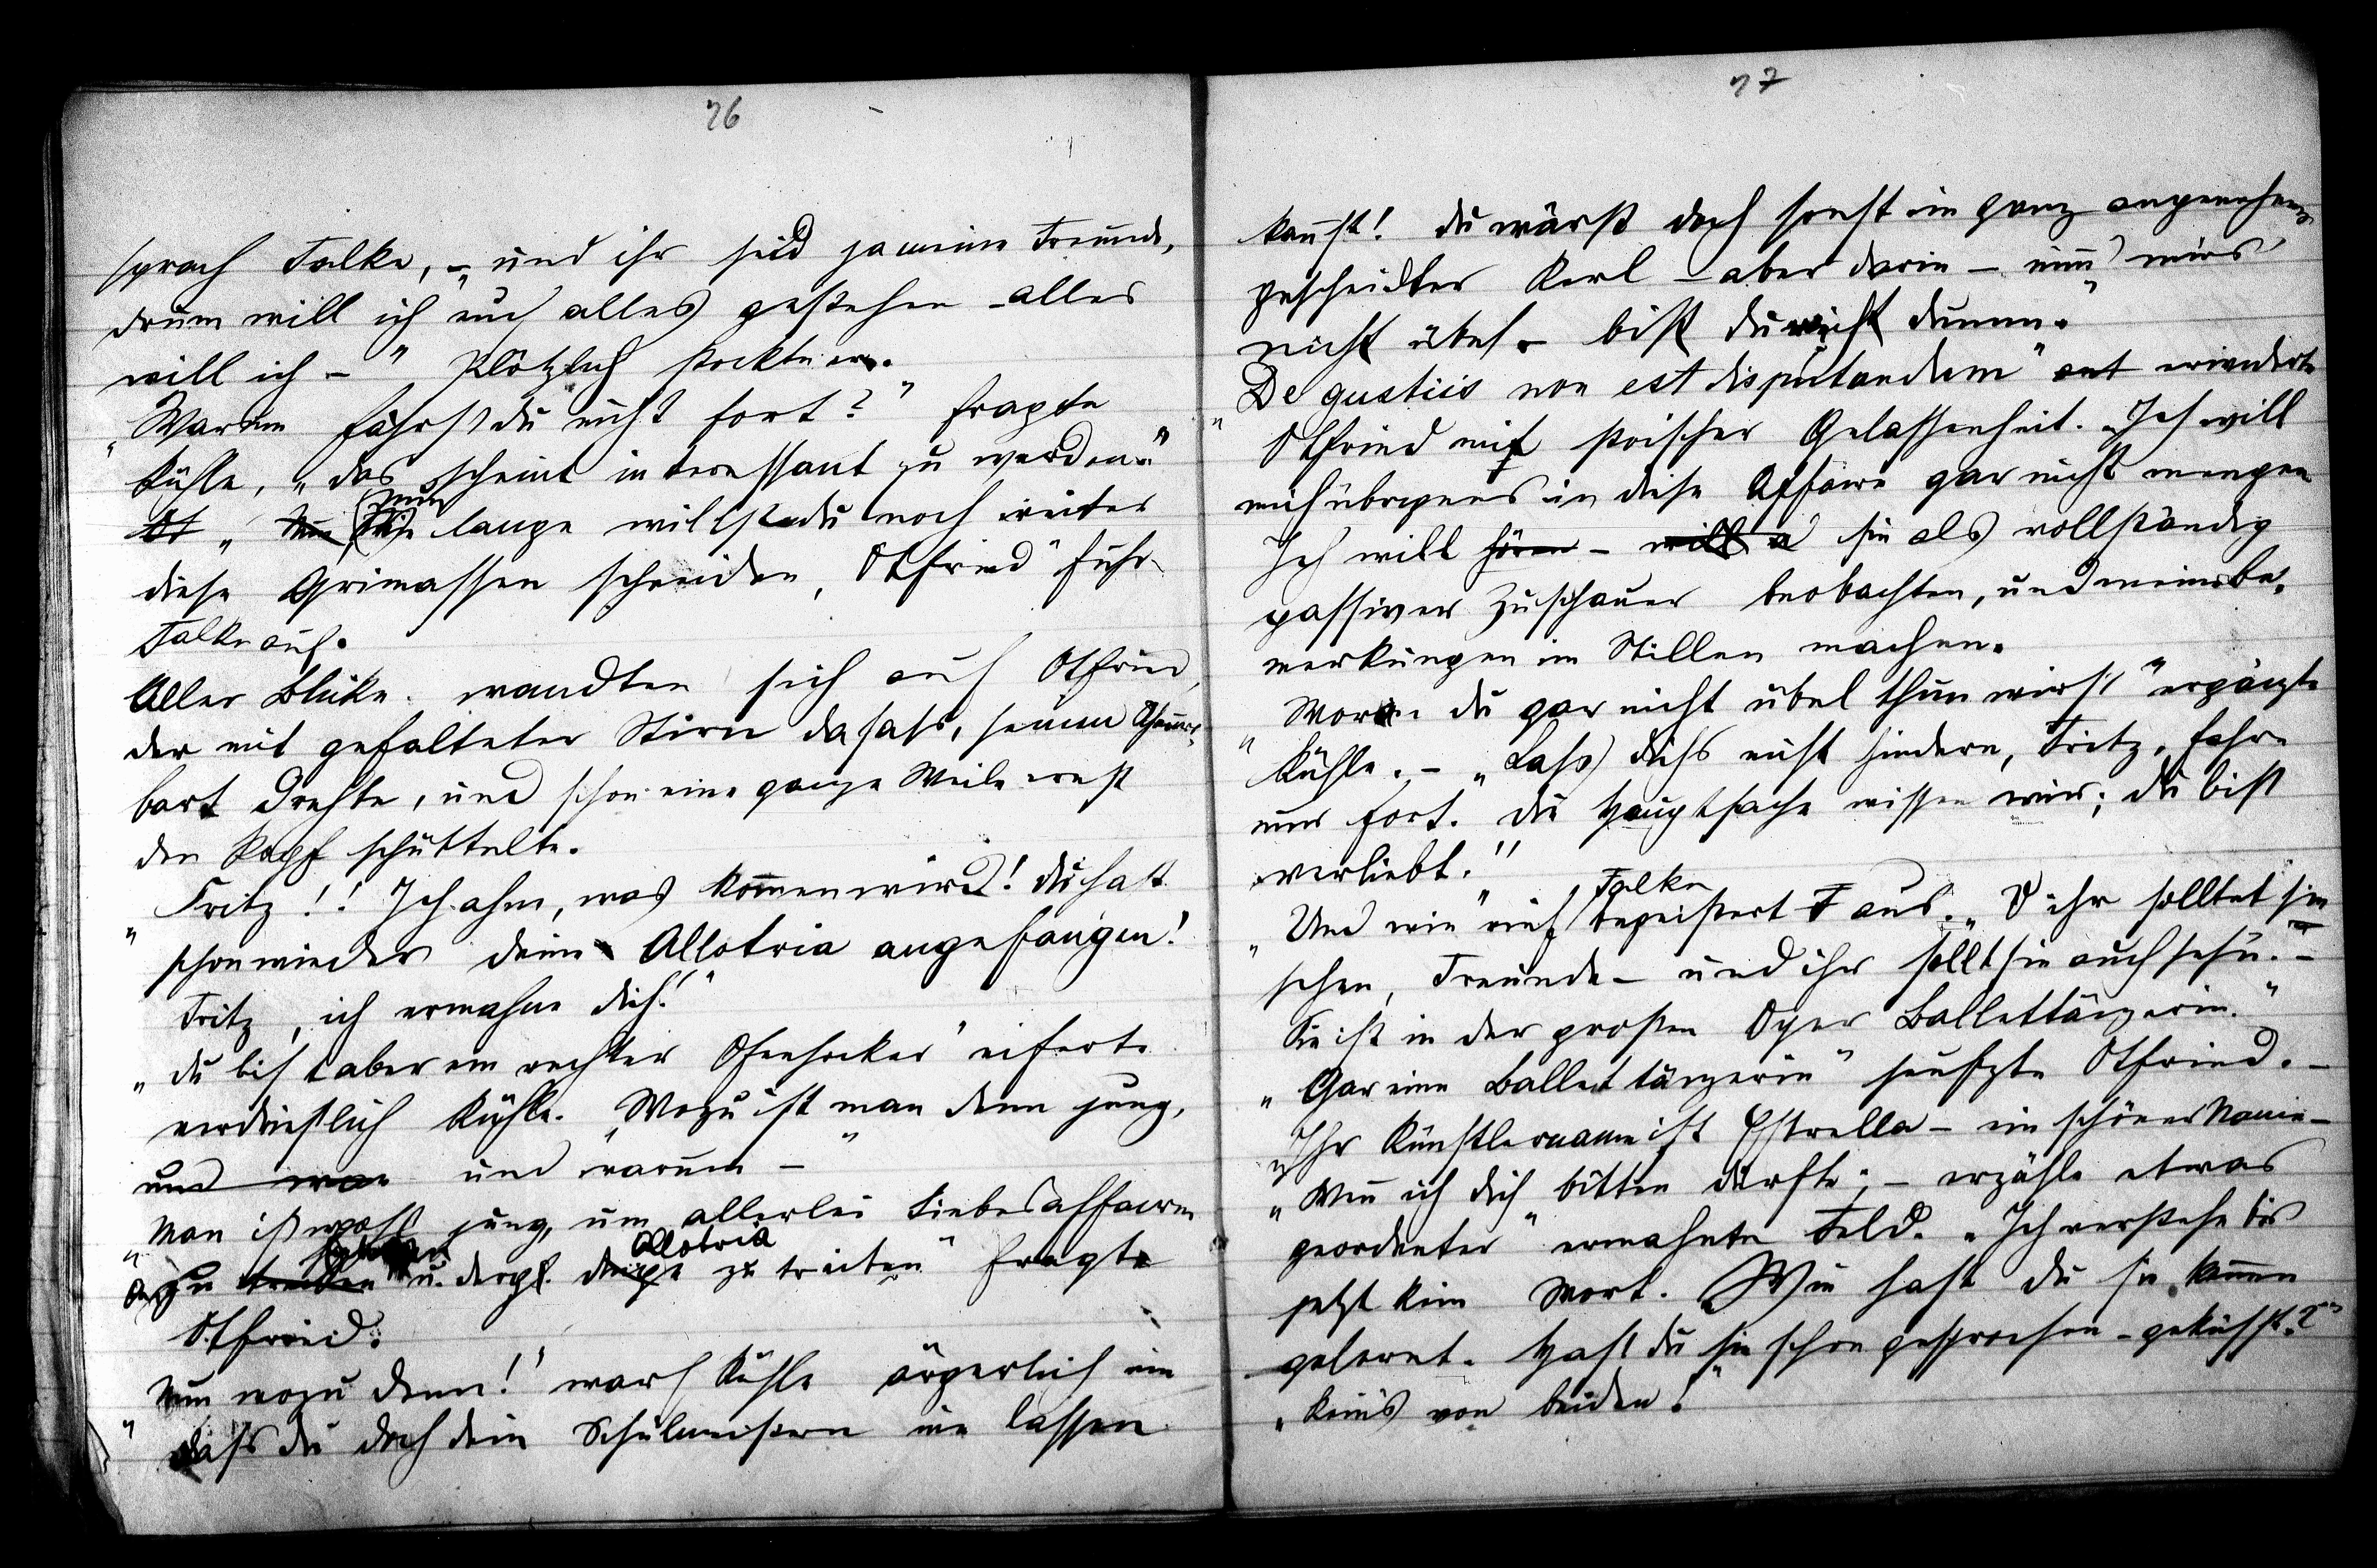 76
sprach Falke, – „und ihr seid ja meine Freunde,
drum will ich euch alles gestehen – alles
will ich – " Plötzlich stockte er.
„Warum fährst du nicht fort?" fragte
Kühle, „das scheint interessant zu werden."
„ lange willst du noch weiter
diese Grimassen schneiden, Otfried" fuhr
Falke auf.
Aller Blicke wandten sich auf Otfried,
der mit gefalteter Stirn dasass, seinen
bart drehte, und schon eine ganze Weile ernst
den Kopf schüttelte.
„Fritz!! Ich ahne, was kommen wird! Du hast
schon wieder deine Allotria angefangen!
Fritz, ich ermahne dich!"
„Du bist aber ein rechter Ofenhocker" eiferte
verdrießlich Kühle. „Wozu ist man denn jung,
und man und warum – "
„Man ist wohl jung, um allerlei Liebesaffairen
zu treiben u. dergl. Allotria zu treiben" fragte
Otfried.
„Nun wozu denn!" warf Kühle ärgerlich ein
„dass du doch dein Schulmeistern nie lassen
77
kannst! Du wärst doch sonst ein ganz angenehmer,
gescheidter Kerl – aber darin – nimm mirs
nicht übel – bist du dumm."
„De gustiis non est disputandum" ant erwiderte
Otfried mit stoischer Gelassenheit. „Ich will
mich übrigens in diese Affaire gar nicht mengen
Ich will hören – will a sie als vollständig
passiver Zuschauer beobachten, und meine Be-
merkungen im Stillen machen.
„Woran du gar nicht übel thun wirst" ergänzte
Kühle. – „Lass dichs nicht hindern, Fritz, fahre
nur fort. Die Hauptsache wissen wir; du bist
verliebt."
„Und wie" rief Falke begeistert F aus. „O ihr solltet sie
sehen, Freunde – und ihr sollt sie auch sehn. –
Sie ist in der großen Oper Ballettänzerin."
„Gar eine Ballettänzerin" seufzte Otfried. –
„Ihr Künstlername ist Estrella – ein schöner Name –
„Wenn ich dich bitten dürfte; – erzähle etwas
geordneter" ermahnte Feld. „Ich verstehe bis
jetzt kein Wort. Wie hast du sie kennen
gelernt. Hast du sie schon gesprochen – geküsst?"
„Keins von beiden!"